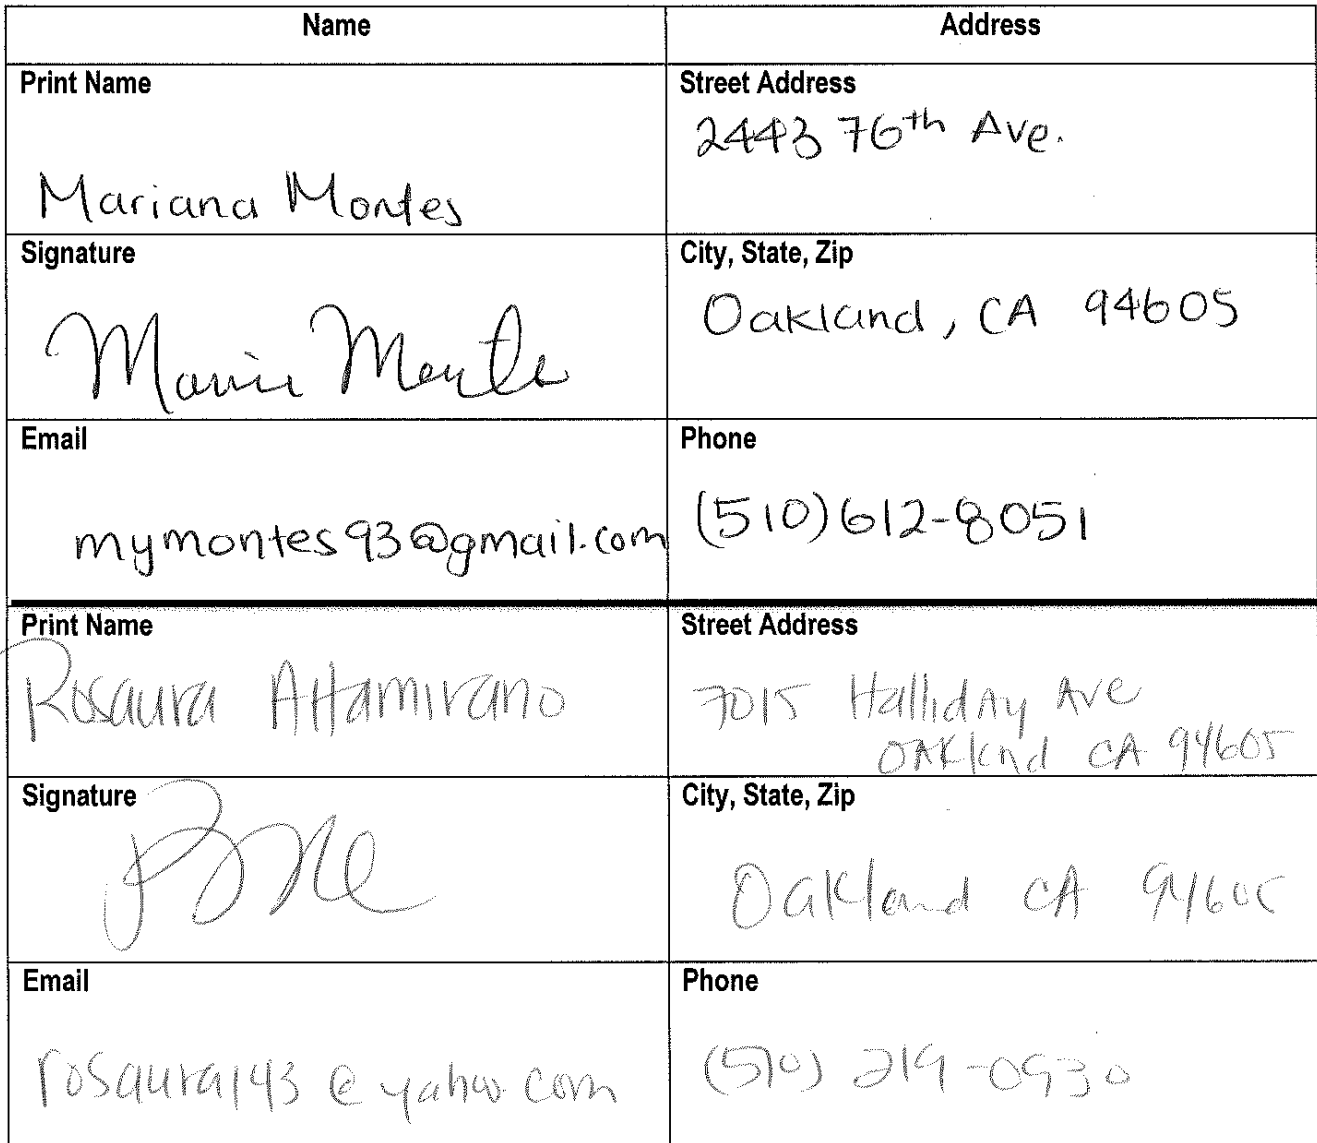 Name
Address
Print Name
Mariana Montes
Street Address
2443 76th Ave.
Signature
City, State, Zip
Oakland, CA 94605
Email
mymontes93@gmail.com
Phone
(510)612-8051
Print Name
Rosaura Altamirano
Street Address
7015 Halliday Ave
Oaklend CA 94605
Signature
City, State, Zip
Oakland CA 94605
Email
rosaura143@yahoo.com
Phone
(510) 219-0930